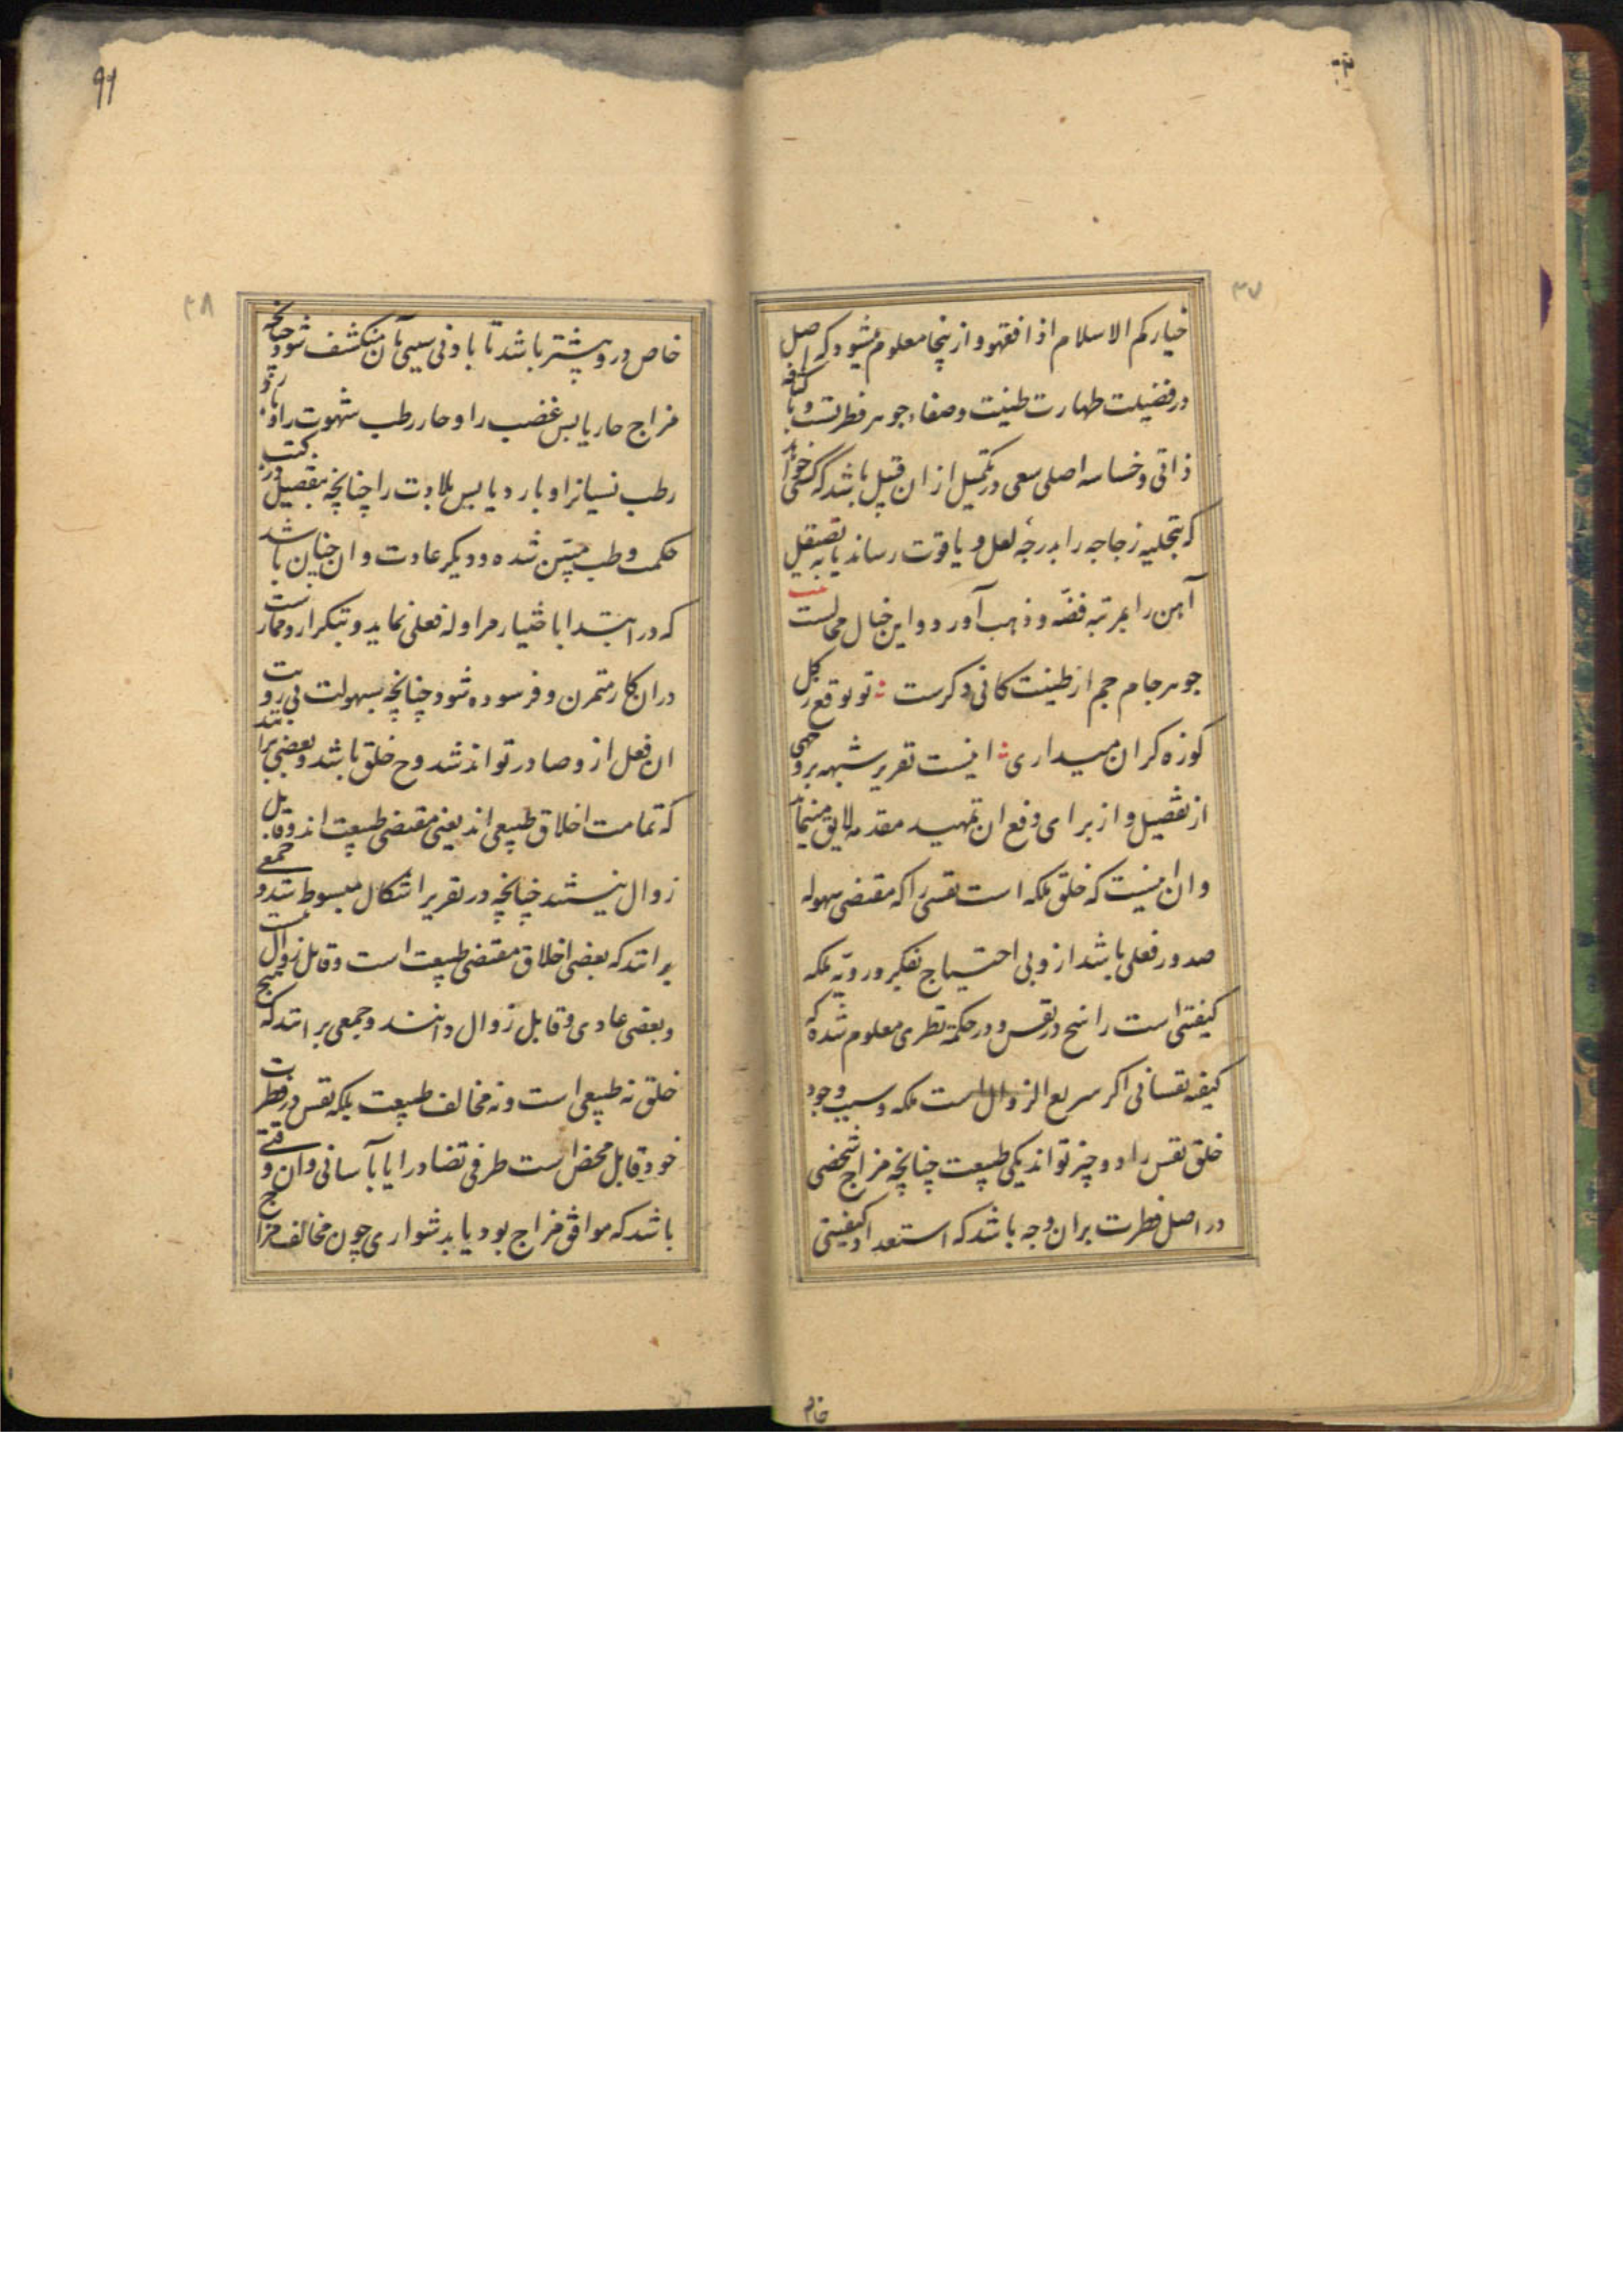 ۳۷
خیارکم الاسلام اذا فقهو و ازینجا معلوم میشود که اصل
در فضیلت طهارت طینت و صفاء جوهر فطرتست و با کثافه
ذاتی و خساسه اصلی سعی در تکمیل از ان قبیل باشد که کسی خواهد
که بتجلیه زجاجه را بدرجهٔ لعل و یاقوت رساند یا به تصقیل
آهن را بمرتبه فضّه و ذهب آورد و این خیال محالست
جوهر جام جم از طینت کانی دکرست تو توقع ز کل
کوزه کران میداری اینست تقریر شبهه بروجهی
از تفصیل و از برای دفع ان تمهید مقدمه لایق مینماید
و ان اینست که خلق ملکه است نفس را که مقتضی سهوله
صدور فعلی باشد از و بی احتیاج بفکر و رویّه ملکه
کیفیتی است راسخ در نفس و در حکمة نظری معلوم شده که
کیفیه نفسانی اکر سریع الزوال است ملکه و سبب وجود
خلق نفس را دو چیز تواند یکی طبیعت چنانچه مزاج شخصی
در اصل فطرت بران وجه باشد که استعداد کیفیتی
خام
۹۹
۳۸
خاص درو بیشتر باشد تا بادنی سببی بان منکشف شود چنانچه
مزاج حار یابس غضب را و حار رطب شهوت را و بارد
رطب نسیانرا و بارد یابس بلادت را چنانچه بتفصیل در کتب
حکمت و طب مبیّن شده و دیکر عادت و ان چنان باشد
که در ابتدا باختیار مزاوله فعلی نماید و بتکرار و ممارست
دران کار متمرن و فرسوده شود چنانچه بسهولت بی رویت
ان فعل از و صادر تواند شد و ح خلق باشد و بعضی برانند
که تمامت اخلاق طبیعی اند یعنی مقتضی طبیعت اند و قابل
زوال نیستند چنانچه در تقریر اشکال مبسوط شد و جمعی
برانند که بعضی اخلاق مقتضی طبیعت است و قابل زوال نیست
و بعضی عادی و قابل زوال دانند و جمعی برانند که هیچ
خلق نه طبیعی است و نه مخالف طبیعت بلکه نفس در فطرت
خود قابل محض است طرفی تضاد را یا بآسانی و ان وقتی
باشد که موافق مزاج بود یا بدشواری چون مخالف مزاج